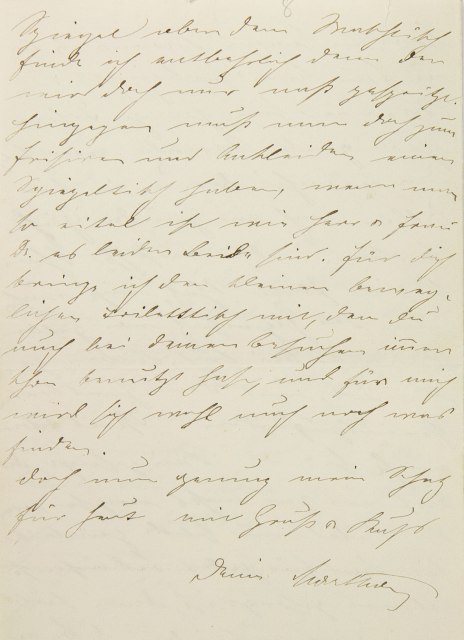 8
Spiegel über dem Waschtisch
finde ich entbehrlich denn der
wird doch nur naß gespritzt.
hingegen muß man doch zum
Frisiren und Ankleiden einen
Spiegeltisch haben, wenn man
so eitel ist wie Herr & Frau
Dr. es leider beide sind. Für dich
bringe ich den kleinen beweg-
lichen Toilettisch mit, den Du
auch bei deinen Besuchen immer
schon benutzt hast, und für mich
wird sich wohl auch noch was
finden.
Doch nun genug mein Schatz
für heut mit Gruß & Kuß
Deine Martha